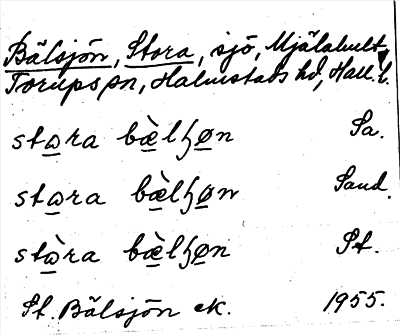 Bälsjön, Stora, sjö, Mjälahult,
Torups sn, Halmstads hd, Hall. l.
stɷra bæ̀lɧøn Sa.
stɷra bæ̀lɧøn Sand.
stɷ̀ra bæ̀lɧøn St.
St. Bälsjön ek. 1955.